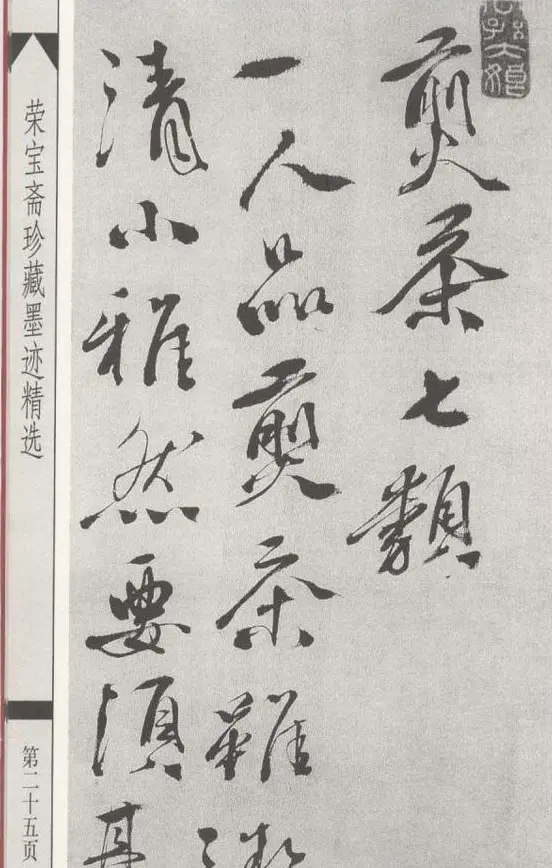 煎茶七類
一人品煎茶雖
清小雅然要須其
荣宝斋珍藏墨迹精选
第二十五页